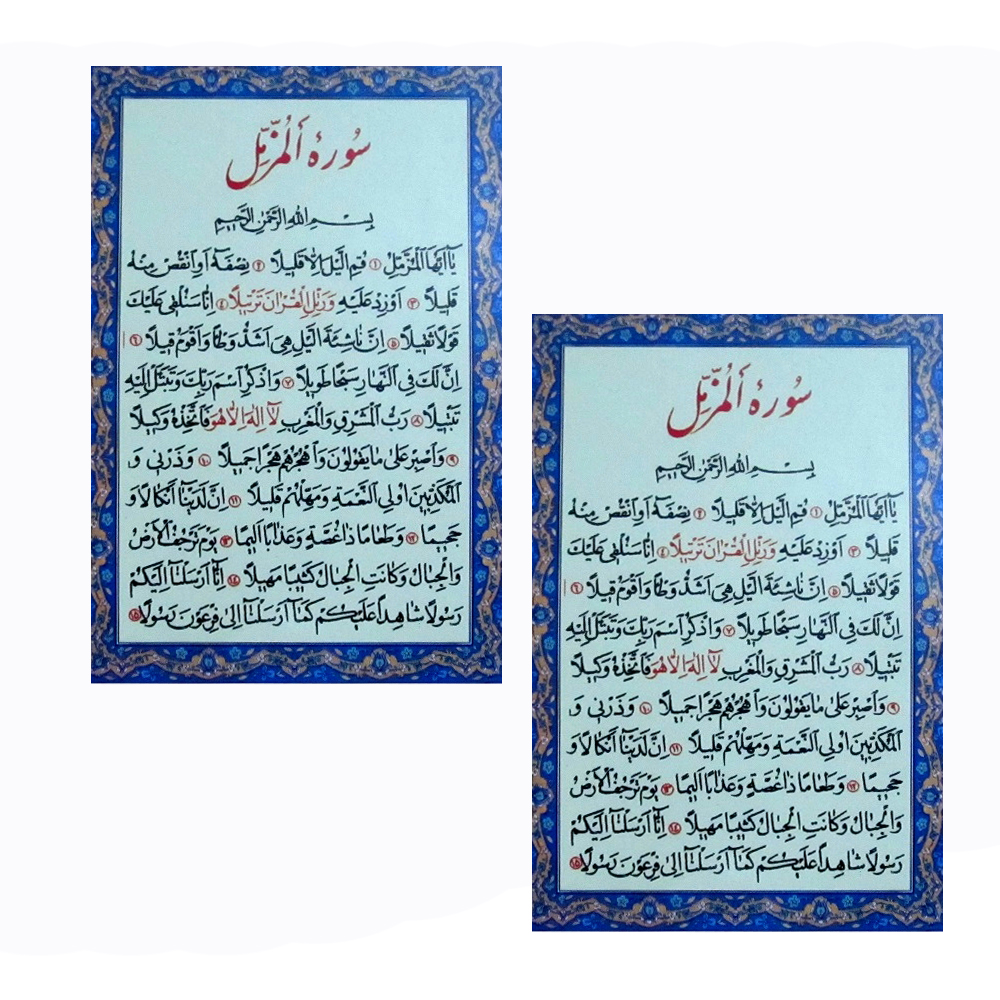 سُورهٔ اَلْمُزَّمِّل
بِسْمِ اللهِ الرَّحْمٰنِ الرَّحيمِ
يٰا اَيُّهَا الْمُزَّمِّلُ ١ قُمِ الَّيْلَ اِلّٰا قَليلًا ٢ نِصْفَهُ اَوِانْقُصْ مِنْهُ
قَليلًا ٣ اَوْزِدْ عَلَيْهِ وَرَتِّلِ الْقُرْاٰنَ تَرْتيلًا ٤ اِنّٰا سَنُلْقى عَلَيْكَ
قَوْلًا ثَقيلًا ٥ اِنَّ نٰاشِئَةَ الَّيْلِ هِىَ اَشَدُّ وَطْاً وَاَقْوَمُ قيلًا ٦
اِنَّ لَكَ فِى النَّهٰارِ سَبْحًا طَويلًا ٧ وَاذْكُرِ اسْمَ رَبِّكَ وَتَبَتَّلْ اِلَيْهِ
تَبْتيلًا ٨ رَبُّ الْمَشْرِقِ وَالْمَغْرِبِ لٰٓا اِلٰهَ اِلّٰا هُوَ فَاتَّخِذْهُ وَكيلًا
٩ وَاصْبِرْ عَلىٰ مٰا يَقُولُونَ وَاهْجُرْهُمْ هَجْرًا جَميلًا ١٠ وَذَرْنى وَ
الْمُكَذِّبينَ اُولِى النَّعْمَةِ وَمَهِّلْهُمْ قَليلًا ١١ اِنَّ لَدَيْنٰا اَنْكٰالًا وَ
جَحيمًا ١٢ وَطَعٰامًا ذٰا غُصَّةٍ وَعَذٰابًا اَليمًا ١٣ يَوْمَ تَرْجُفُ الْاَرْضُ
وَالْجِبٰالُ وَكٰانَتِ الْجِبٰالُ كَثيبًا مَهيلًا ١٤ اِنّٰا اَرْسَلْنٰا اِلَيْكُمْ
رَسُولًا شٰاهِدًا عَلَيْكُمْ كَمٰا اَرْسَلْنٰا اِلىٰ فِرْعَوْنَ رَسُولًا ١٥
سُورهٔ اَلْمُزَّمِّل
بِسْمِ اللهِ الرَّحْمٰنِ الرَّحيمِ
يٰا اَيُّهَا الْمُزَّمِّلُ ١ قُمِ الَّيْلَ اِلّٰا قَليلًا ٢ نِصْفَهُ اَوِانْقُصْ مِنْهُ
قَليلًا ٣ اَوْزِدْ عَلَيْهِ وَرَتِّلِ الْقُرْاٰنَ تَرْتيلًا ٤ اِنّٰا سَنُلْقى عَلَيْكَ
قَوْلًا ثَقيلًا ٥ اِنَّ نٰاشِئَةَ الَّيْلِ هِىَ اَشَدُّ وَطْاً وَاَقْوَمُ قيلًا ٦
اِنَّ لَكَ فِى النَّهٰارِ سَبْحًا طَويلًا ٧ وَاذْكُرِ اسْمَ رَبِّكَ وَتَبَتَّلْ اِلَيْهِ
تَبْتيلًا ٨ رَبُّ الْمَشْرِقِ وَالْمَغْرِبِ لٰٓا اِلٰهَ اِلّٰا هُوَ فَاتَّخِذْهُ وَكيلًا
٩ وَاصْبِرْ عَلىٰ مٰا يَقُولُونَ وَاهْجُرْهُمْ هَجْرًا جَميلًا ١٠ وَذَرْنى وَ
الْمُكَذِّبينَ اُولِى النَّعْمَةِ وَمَهِّلْهُمْ قَليلًا ١١ اِنَّ لَدَيْنٰا اَنْكٰالًا وَ
جَحيمًا ١٢ وَطَعٰامًا ذٰا غُصَّةٍ وَعَذٰابًا اَليمًا ١٣ يَوْمَ تَرْجُفُ الْاَرْضُ
وَالْجِبٰالُ وَكٰانَتِ الْجِبٰالُ كَثيبًا مَهيلًا ١٤ اِنّٰا اَرْسَلْنٰا اِلَيْكُمْ
رَسُولًا شٰاهِدًا عَلَيْكُمْ كَمٰا اَرْسَلْنٰا اِلىٰ فِرْعَوْنَ رَسُولًا ١٥